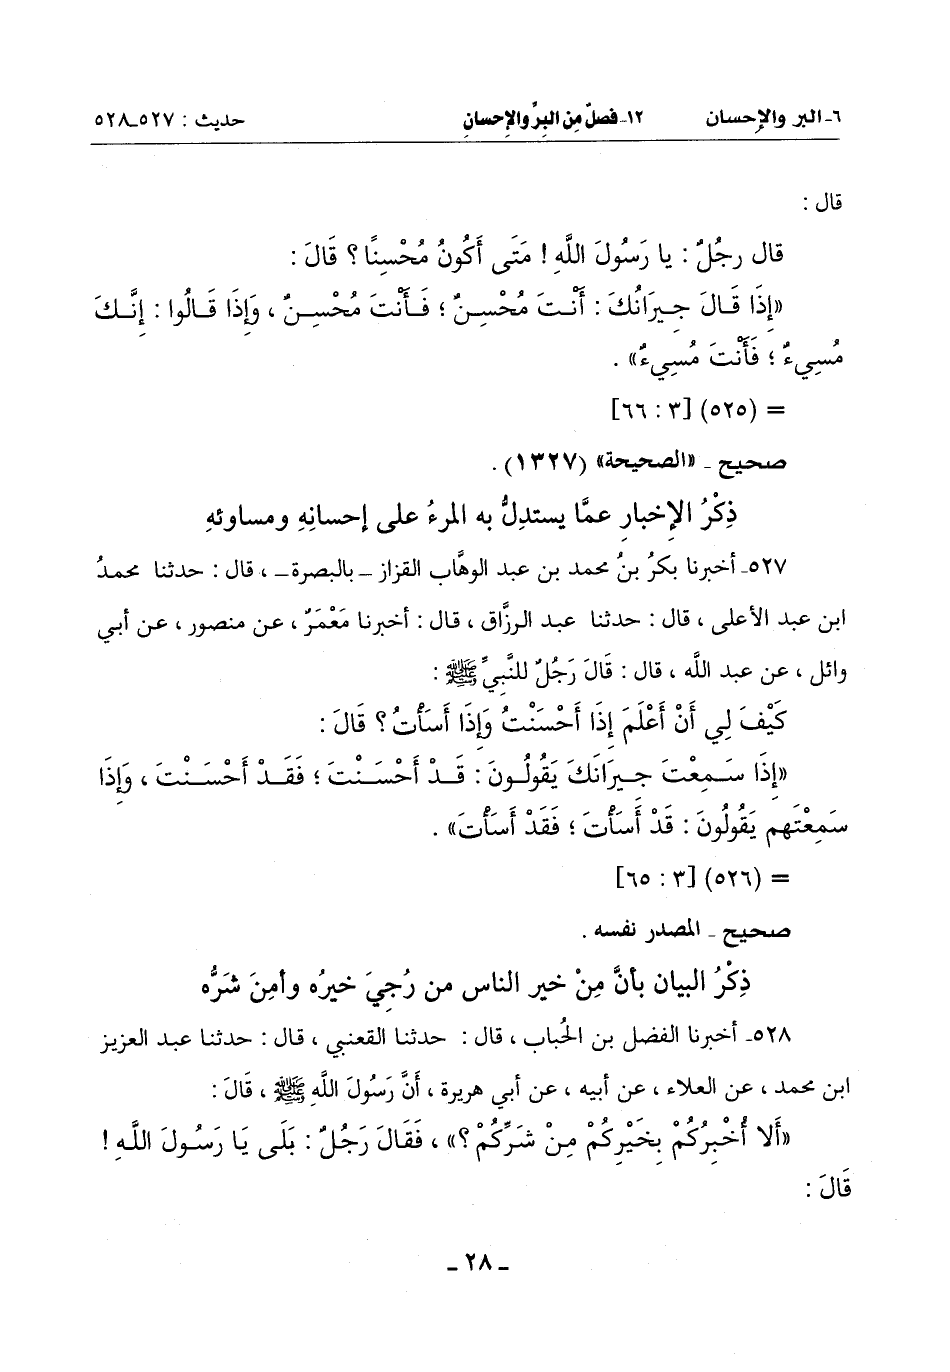 ٦ـ البر والإحسان ١٢ـ فصلٌ مِن البِرِّ والإحسانِ حديث : ٥٢٧ـ٥٢٨
قال :
قال رجُلٌ : يا رَسُولَ اللَّهِ ! مَتَى أَكُونُ مُحْسِنًا ؟ قَالَ :
«إِذَا قَالَ جِيرَانُكَ : أَنْتَ مُحْسِنٌ ؛ فَأَنْتَ مُحْسِنٌ ، وَإِذَا قَالُوا : إِنَّكَ
مُسِيءٌ ؛ فَأَنْتَ مُسِيءٌ» .
= (٥٢٥) [٣ : ٦٦]
صحيح ـ «الصحيحة» (١٣٢٧) .
ذِكْرُ الإخبارِ عمَّا يستدِلُّ به المرءُ على إحسانِهِ ومساوئهِ
٥٢٧ـ أخبرنا بكرُ بنُ محمد بن عبد الوهَّاب القزاز ـ بالبصرة ـ ، قال : حدثنا محمدُ
ابن عبد الأعلى ، قال : حدثنا عبد الرزَّاق ، قال : أخبرنا مَعْمَرٌ ، عن منصور ، عن أبي
وائل ، عن عبد اللَّه ، قال : قَالَ رَجُلٌ للنَّبِيِّ ﷺ :
كَيْفَ لِي أَنْ أَعْلَمَ إِذَا أَحْسَنْتُ وَإِذَا أَسَأْتُ ؟ قَالَ :
«إِذَا سَمِعْتَ جِيرَانَكَ يَقُولُونَ : قَدْ أَحْسَنْتَ ؛ فَقَدْ أَحْسَنْتَ ، وَإِذَا
سَمِعْتَهم يَقُولُونَ : قَدْ أَسَأْتَ ؛ فَقَدْ أَسَأْتَ» .
= (٥٢٦) [٣ : ٦٥]
صحيح ـ المصدر نفسه .
ذِكْرُ البيان بأنَّ مِنْ خير الناس من رُجِيَ خيرُه وأمِنَ شَرُّه
٥٢٨ـ أخبرنا الفضل بن الحُباب ، قال : حدثنا القعنبي ، قال : حدثنا عبد العزيز
ابن محمد ، عن العلاء ، عن أبيه ، عن أبي هريرة ، أَنَّ رَسُولَ اللَّهِ ﷺ ، قَالَ :
«أَلا أُخْبِرُكُمْ بِخَيْرِكُمْ مِنْ شَرِّكُمْ ؟» ، فَقَالَ رَجُلٌ : بَلَى يَا رَسُولَ اللَّهِ !
قَالَ :
ـ ٢٨ ـ